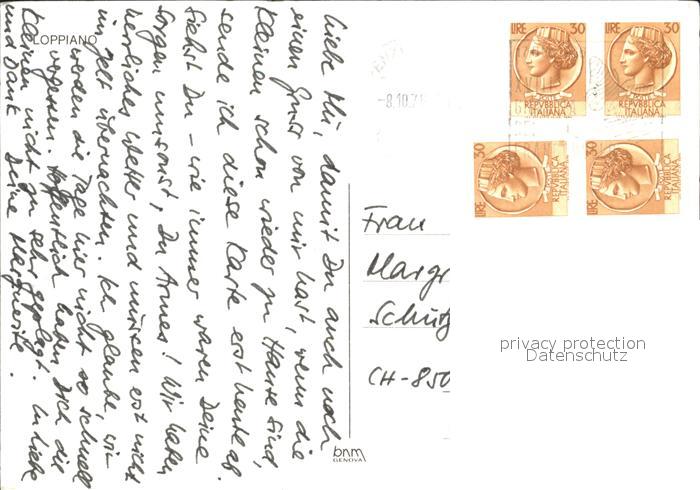 LOPPIANO
Liebe Mü, damit Du auch noch
einen Gruss von mir hast, wenn die
Kleinen schon wieder zu Hause sind,
sende ich diese Karte erst heute ab.
Siehst Du – wie immer waren Deine
Sorgen umsonst, Du Armes! Wir haben
herrliches Wetter und müssen erst nicht
im Zelt übernachten. Ich glaube, wir
werden die Tage hier nicht so schnell
vergessen. Hoffentlich haben Dich die
Kleinen nicht zu sehr geplagt. In Liebe
und Dank Deine Marguerite.
-8.10.7
LIRE 30
POSTE
REPVBBLICA
ITALIANA
LIRE 30
POSTE
REPVBBLICA
ITALIANA
LIRE 30
POSTE
REPVBBLICA
ITALIANA
LIRE 30
POSTE
REPVBBLICA
ITALIANA
Frau
Margr
Schütz
CH-850
privacy protection
Datenschutz
bnm
GENOVA